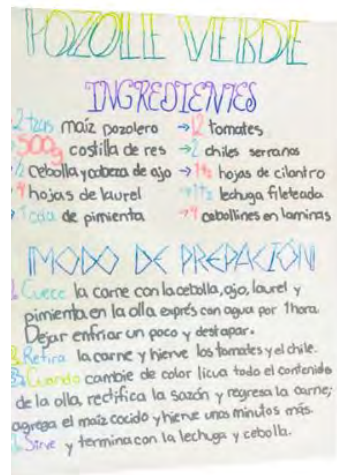 POZOLE VERDE
INGREDIENTES
2 tzas maíz pozolero → 12 tomates
500g costilla de res → 2 chiles serranos
1/2 cebolla y cabeza de ajo → 1 tz hojas de cilantro
4 hojas de laurel → 1 tz lechuga fileteada
1 cda de pimienta → 4 cebollines en laminas
¡MODO DE PREPACIÓN!
1. Cuece la carne con la cebolla, ajo, laurel y
pimienta en la olla exprés con agua por 1 hora.
Dejar enfriar un poco y destapar.
2. Retira la carne y hierve los tomates y el chile.
3. Cuando cambie de color licua todo el contenido
de la olla, rectifica la sazón y regresa la carne;
agrega el maíz cocido y hierve unos minutos más.
Sirve y termina con la lechuga y cebolla.